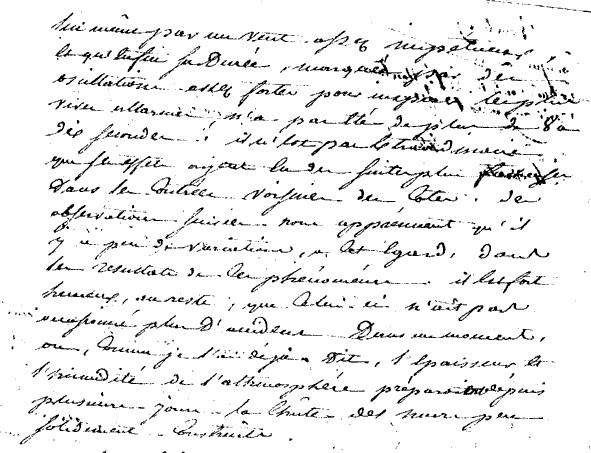 lui même par un vent assez impétueux,
et qu'enfin sa durée, marquée par des
oscillations assez fortes pour inspirer les plus
vives allarmes, n'a pas été de plus de 8 à
dix secondes. il n'est pas extraordinaire
que ses effets ayent eu des suites plus
dans les contrées voisines des côtes. des
observations suivies nous apprennent qu'il
y a peu de variations, à cet égard, dans
les resultats de ces phénomènes. il est fort
heureux, au reste, que celui-ci n'ait pas
occasionné plus d'accidens dans un moment,
ou, comme je l'ai déjà dit, l'épaisseur et
l'humidité de l'athmosphère préparoit depuis
plusieurs jours la chûte des murs peu
solidement construits.